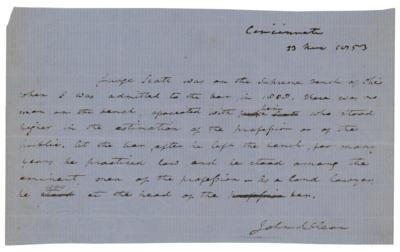 Cincinnati
23 Nov 1853
Judge Scott was on the Supreme bench of Ohio
when I was admitted to the bar in 1808. There was no
man on the bench, associated with him who stood
higher in the estimation of the profession or of the
public. At the bar, after he left the bench, for many
years he practiced law and he stood among the
eminent men of the profession – As a land lawyer,
he was at the head of the profession bar.
John McLean